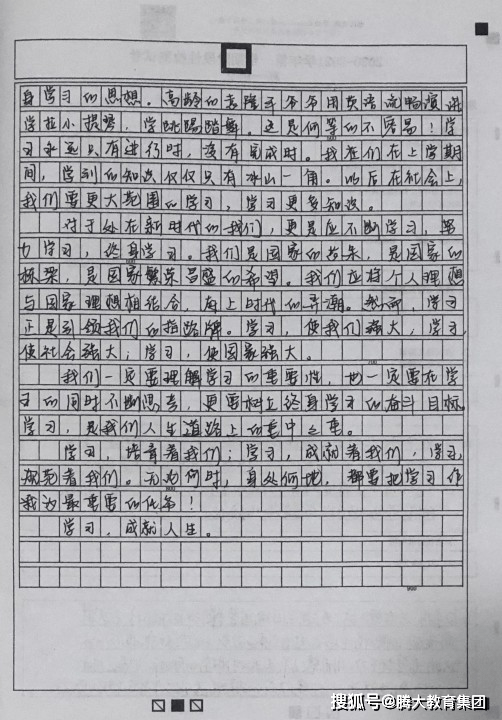 身学习的思想。高龄的袁隆平爷爷用英语流畅演讲
学拉小提琴，学跳踢踏舞。这是何等的不容易！学
习永远只有进行时，没有完成时。我在们在上学期
间，学到的知识仅仅只有冰山一角。以后在社会上，
我们需更大范围的学习，学习更多知识。
对于处在新时代的我们，更是应不断学习，努
力学习，终身学习。我们是国家的未来，是国家的
栋梁，是国家繁荣昌盛的希望。我们应将个人理想
与国家理想相结合，站上时代的弄潮。然而，学习
正是引领我们的指路牌。学习，使我们强大；学习，
使社会强大；学习，使国家强大。
我们一定要理解学习的重要性，也一定要在学
习的同时不断思考，更要树立终身学习的奋斗目标。
学习，是我们人生道路上的重中之重。
学习，培育着我们；学习，成就着我们；学习，
规范着我们。无论何时，身处何地，都要把学习作
我为最重要的任务！
学习，成就人生。
900
搜狐号@腾大教育集团